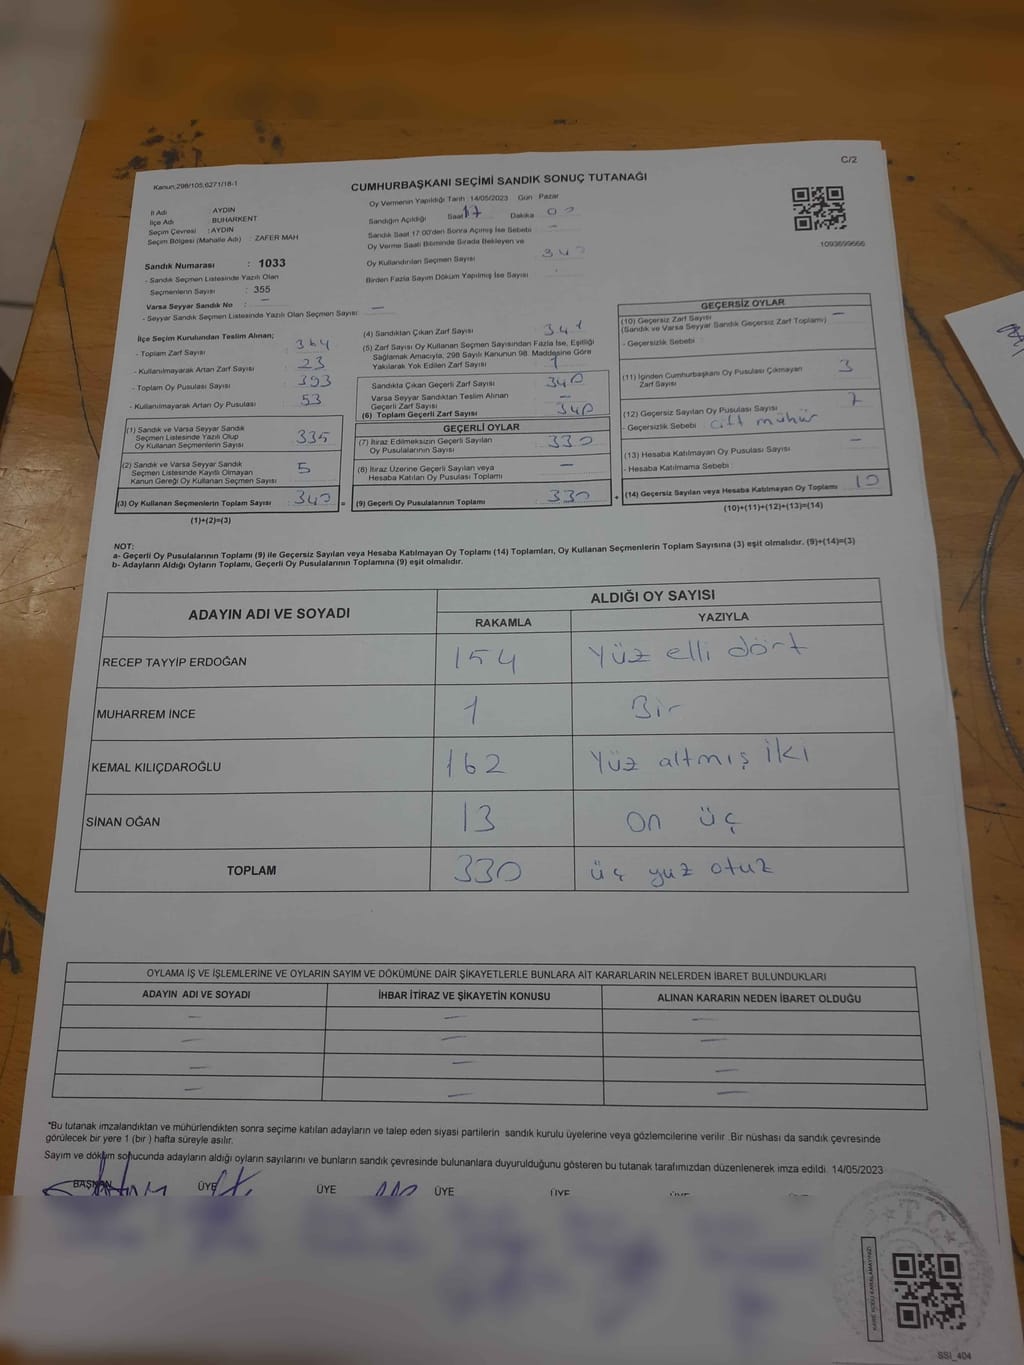 C/2
Kanun,298/105,6271/18-1
CUMHURBAŞKANI SEÇİMİ SANDIK SONUÇ TUTANAĞI
İl Adı : AYDIN
İlçe Adı : BUHARKENT
Seçim Çevresi : AYDIN
Seçim Bölgesi (Mahalle Adı) : ZAFER MAH
Sandık Numarası : 1033
- Sandık Seçmen Listesinde Yazılı Olan
Seçmenlerin Sayısı : 355
Varsa Seyyar Sandık No : —
- Seyyar Sandık Seçmen Listesinde Yazılı Olan Seçmen Sayısı : —
Oy Vermenin Yapıldığı Tarih 14/05/2023 Gün Pazar
Sandığın Açıldığı Saat 17 Dakika 00
Sandık Saat 17:00'den Sonra Açılmış İse Sebebi —
Oy Verme Saati Bitiminde Sırada Bekleyen ve
Oy Kullandırılan Seçmen Sayısı 340
Birden Fazla Sayım Döküm Yapılmış İse Sayısı
1093699666
İlçe Seçim Kurulundan Teslim Alınan;
- Toplam Zarf Sayısı 364
- Kullanılmayarak Artan Zarf Sayısı 23
- Toplam Oy Pusulası Sayısı 393
- Kullanılmayarak Artan Oy Pusulası 53
(1) Sandık ve Varsa Seyyar Sandık
Seçmen Listesinde Yazılı Olup
Oy Kullanan Seçmenlerin Sayısı 335
(2) Sandık ve Varsa Seyyar Sandık
Seçmen Listesinde Kayıtlı Olmayan
Kanun Gereği Oy Kullanan Seçmen Sayısı 5
(3) Oy Kullanan Seçmenlerin Toplam Sayısı 340 =
(1)+(2)=(3)
(4) Sandıktan Çıkan Zarf Sayısı 341
(5) Zarf Sayısı Oy Kullanan Seçmen Sayısından Fazla İse, Eşitliği
Sağlamak Amacıyla, 298 Sayılı Kanunun 98. Maddesine Göre
Yakılarak Yok Edilen Zarf Sayısı 1
Sandıkta Çıkan Geçerli Zarf Sayısı 340
Varsa Seyyar Sandıktan Teslim Alınan
Geçerli Zarf Sayısı —
(6) Toplam Geçerli Zarf Sayısı 340
GEÇERLİ OYLAR
(7) İtiraz Edilmeksizin Geçerli Sayılan
Oy Pusulalarının Sayısı 330
(8) İtiraz Üzerine Geçerli Sayılan veya
Hesaba Katılan Oy Pusulası Toplamı —
(9) Geçerli Oy Pusulalarının Toplamı 330 +
GEÇERSİZ OYLAR
(10) Geçersiz Zarf Sayısı
(Sandık ve Varsa Seyyar Sandık Geçersiz Zarf Toplamı) —
- Geçersizlik Sebebi :
(11) İçinden Cumhurbaşkanı Oy Pusulası Çıkmayan
Zarf Sayısı 3
(12) Geçersiz Sayılan Oy Pusulası Sayısı 7
- Geçersizlik Sebebi : çift mühür
(13) Hesaba Katılmayan Oy Pusulası Sayısı —
- Hesaba Katılmama Sebebi :
(14) Geçersiz Sayılan veya Hesaba Katılmayan Oy Toplamı 10
(10)+(11)+(12)+(13)=(14)
NOT:
a- Geçerli Oy Pusulalarının Toplamı (9) ile Geçersiz Sayılan veya Hesaba Katılmayan Oy Toplamı (14) Toplamları, Oy Kullanan Seçmenlerin Toplam Sayısına (3) eşit olmalıdır. (9)+(14)=(3)
b- Adayların Aldığı Oyların Toplamı, Geçerli Oy Pusulalarının Toplamına (9) eşit olmalıdır.
ADAYIN ADI VE SOYADI ALDIĞI OY SAYISI
RAKAMLA YAZIYLA
RECEP TAYYİP ERDOĞAN 154 Yüz elli dört
MUHARREM İNCE 1 Bir
KEMAL KILIÇDAROĞLU 162 Yüz altmış İki
SİNAN OĞAN 13 On üç
TOPLAM 330 üç yuz otuz
OYLAMA İŞ VE İŞLEMLERİNE VE OYLARIN SAYIM VE DÖKÜMÜNE DAİR ŞİKAYETLERLE BUNLARA AİT KARARLARIN NELERDEN İBARET BULUNDUKLARI
ADAYIN ADI VE SOYADI İHBAR İTİRAZ VE ŞİKAYETİN KONUSU ALINAN KARARIN NEDEN İBARET OLDUĞU
— — —
— — —
— — —
— — —
"Bu tutanak imzalandıktan ve mühürlendikten sonra seçime katılan adayların ve talep eden siyasi partilerin sandık kurulu üyelerine veya gözlemcilerine verilir. Bir nüshası da sandık çevresinde
görülecek bir yere 1 (bir ) hafta süreyle asılır.
Sayım ve döküm sonucunda adayların aldığı oyların sayılarını ve bunların sandık çevresinde bulunanlara duyurulduğunu gösteren bu tutanak tarafımızdan düzenlenerek imza edildi. 14/05/2023
BAŞKAN ÜYE ÜYE ÜYE ÜYE
T.C.
KARE KODU KARALAMAYINIZ!
SSI_404